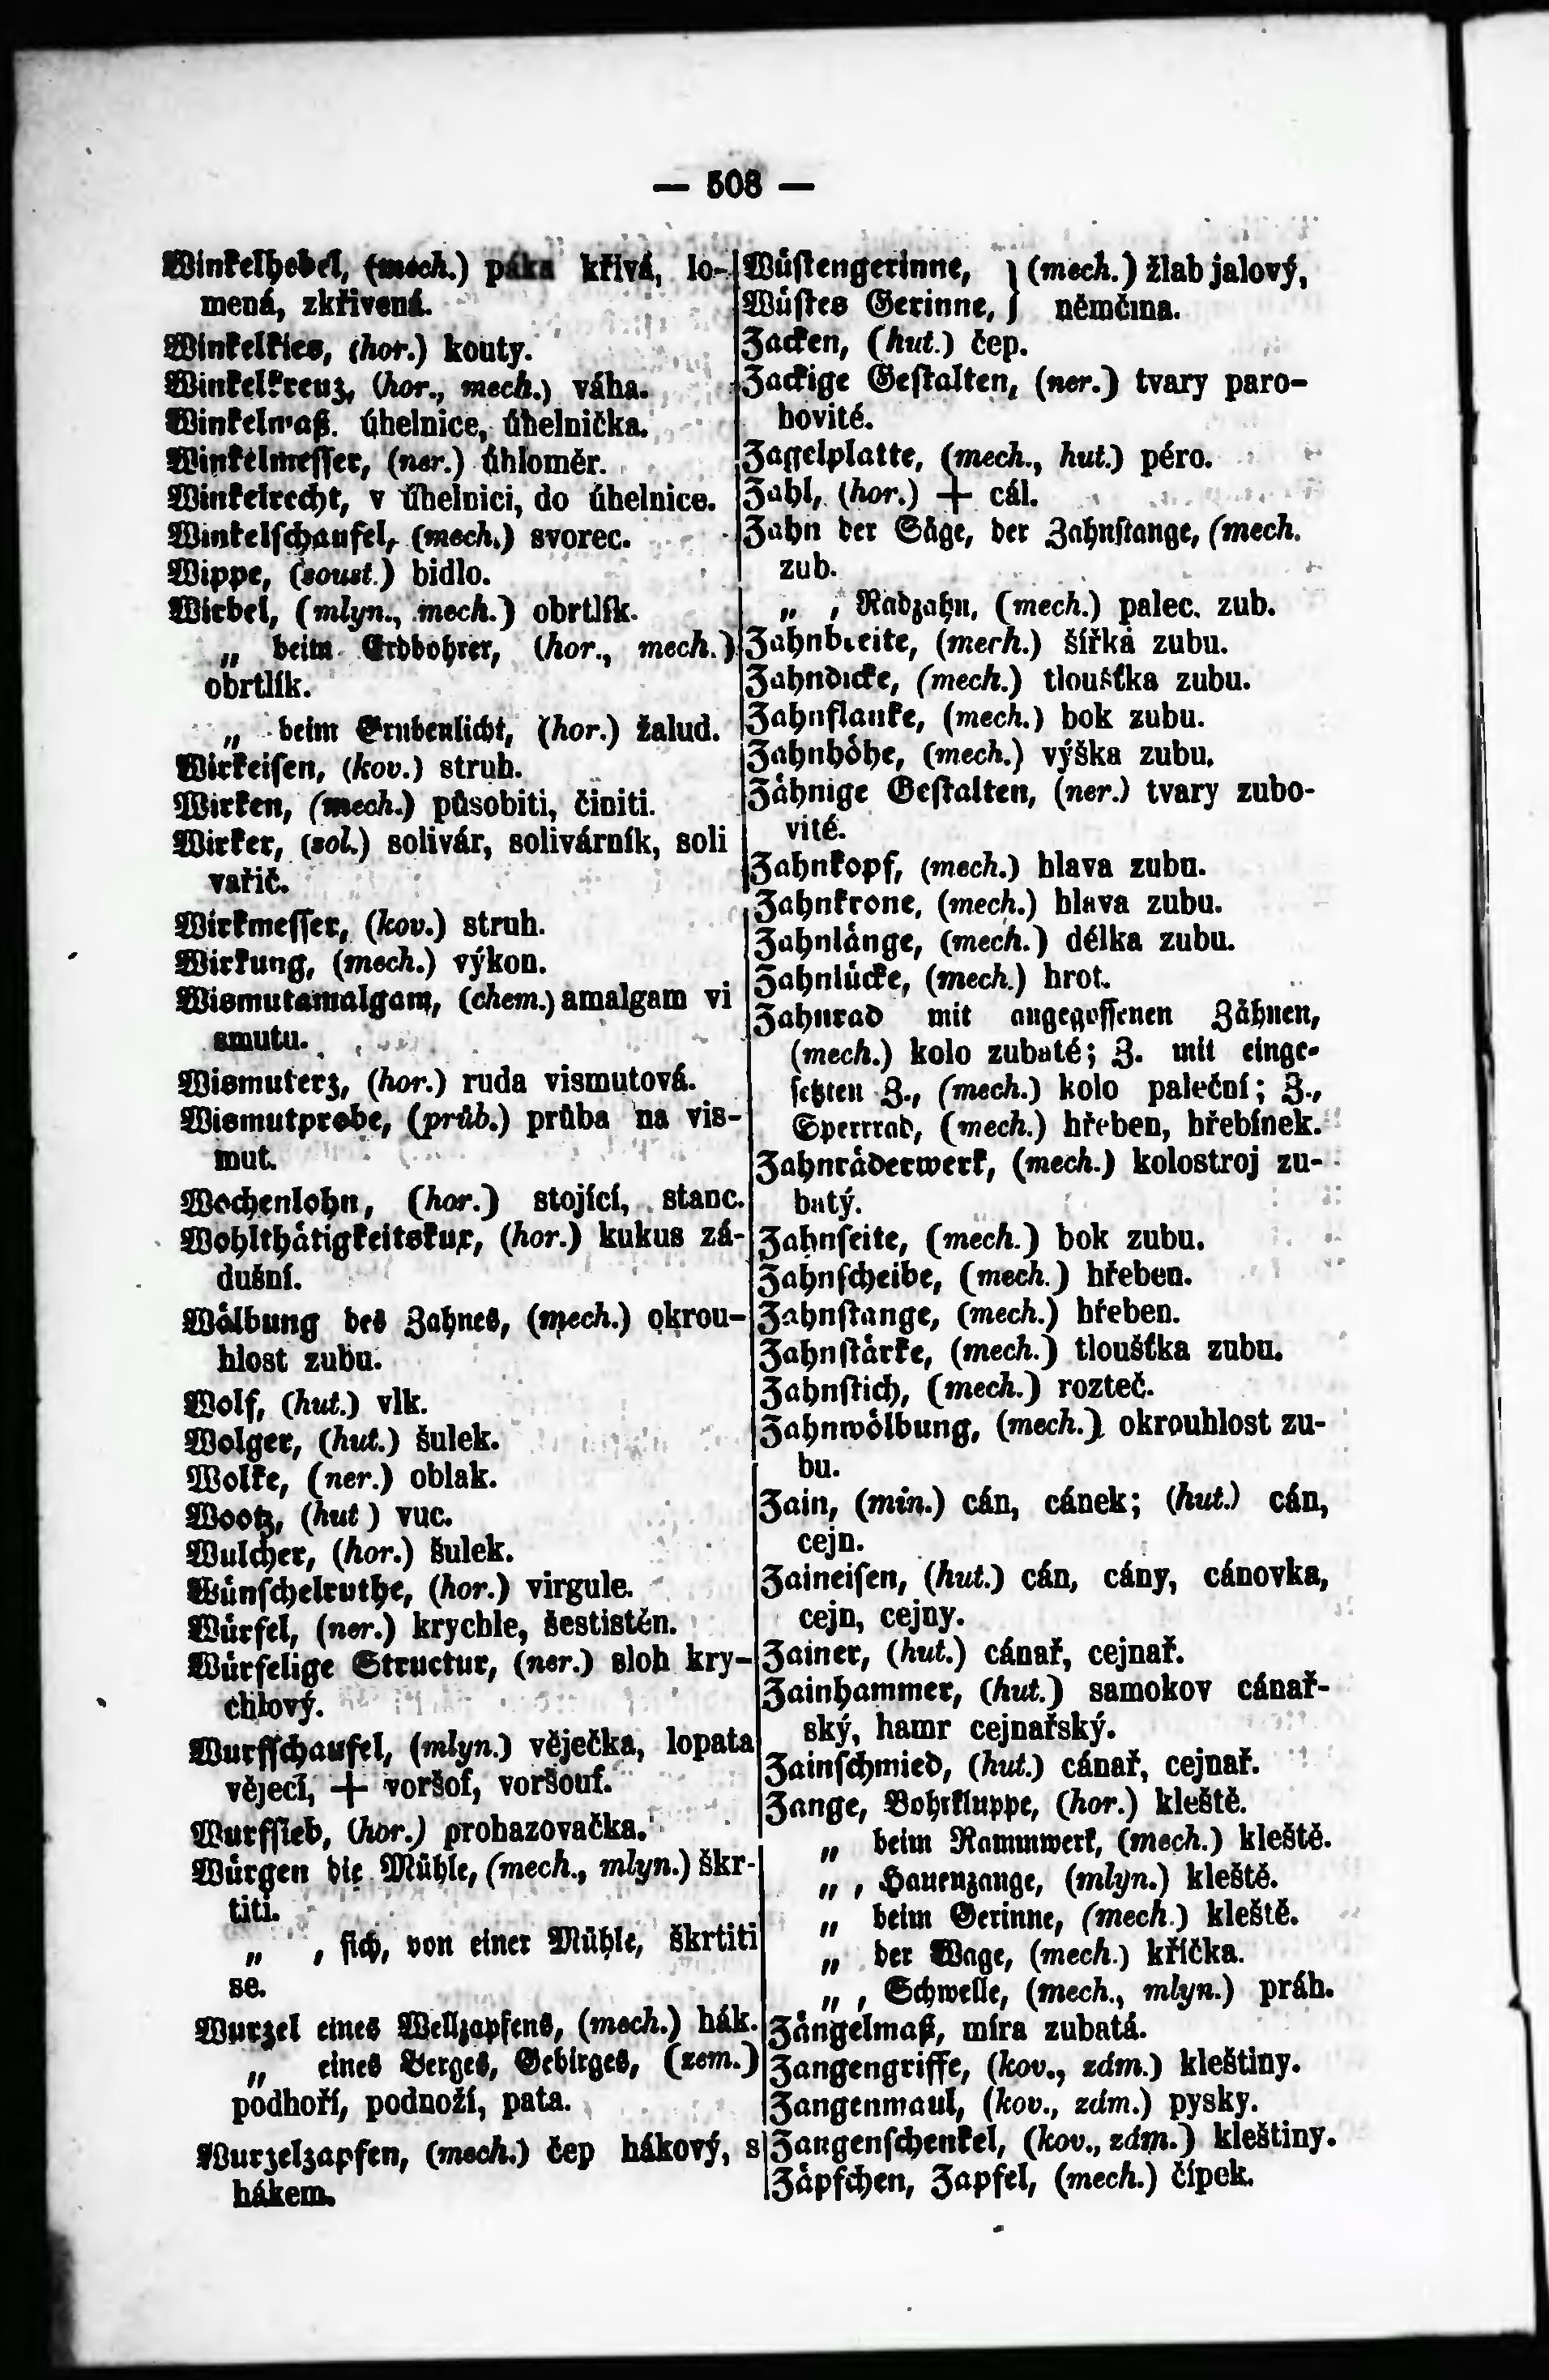 — 508 —
Winkelhebel, (mech.) páka křivá, lo-
mená, zkřivená.
Winkelkies, (hor.) kouty.
Winkelkreuz, (hor., mech.) váha.
Winkelmaß. úhelnice, úhelnička.
Winkelmesser, (ner.) úhloměr.
Winkelrecht, v úhelnici, do úhelnice.
Winkelschaufel, (mech.) svorec.
Wippe, (soust.) bidlo.
Wirbel, (mlyn., mech.) obrtlík.
„ beim Erdbohrer, (hor., mech.)
obrtlík.
„ beim Grubenlicht, (hor.) žalud.
Wirkeisen, (kov.) struh.
Wirken, (mech.) působiti, činiti.
Wirker, (sol.) solivár, solivárník, soli
vařič.
Wirkmesser, (kov.) struh.
Wirkung, (mech.) výkon.
Wismutamalgam, (chem.) amalgam vi
smutu.
Wismuterz, (hor.) ruda vismutová.
Wismutprobe, (průb.) průba na vis-
mut.
Wochenlohn, (hor.) stojící, stanc.
Wohlthätigkeitskux, (hor.) kukus zá-
dušní.
Wölbung des Zahnes, (mech.) okrou-
hlost zubu.
Wolf, (hut.) vlk.
Wolger, (hut.) šulek.
Wolke, (ner.) oblak.
Wootz, (hut ) vuc.
Wulcher, (hor.) šulek.
Wünschelruthe, (hor.) virgule.
Würfel, (ner.) krychle, šestistěn.
Würfelige Structur, (ner.) sloh kry-
chlový.
Wurfschaufel, (mlyn.) věječka, lopata
vějecí, + voršof, voršouf.
Wurfsieb, (hor.) prohazovačka.
Würgen die Mühle, (mech., mlyn.) škr-
titi.
„ , sich, von einer Mühle, škrtiti
se.
Wurzel eines Wellzapfens, (mech.) hák.
„ eines Berges, Gebirges, (zem.)
podhoří, podnoží, pata.
Wurzelzapfen, (mech.) čep hákový, s
hákem.
Wüstengerinne, } (mech.) žlab jalový,
Wüstes Gerinne, } němčina.
Zacken, (hut.) čep.
Zackige Gestalten, (ner.) tvary paro-
hovité.
Zagelplatte, (mech., hut.) péro.
Zahl, (hor.) + cál.
Zahn der Säge, der Zahnstange, (mech.
zub.
„ , Radzahn, (mech.) palec, zub.
Zahnbreite, (mech.) šířka zubu.
Zahndicke, (mech.) tloušťka zubu.
Zahnflanke, (mech.) bok zubu.
Zahnhöhe, (mech.) výška zubu.
Zähnige Gestalten, (ner.) tvary zubo-
vité.
Zahnkopf, (mech.) hlava zubu.
Zahnkrone, (mech.) hlava zubu.
Zahnlänge, (mech.) délka zubu.
Zahnlücke, (mech.) hrot.
Zahnrad mit angegossenen Zähnen,
(mech.) kolo zubaté; Z. mit einge-
setzten Z., (mech.) kolo paleční; Z.,
Sperrrad, (mech.) hřeben, hřebínek.
Zahnräderwerk, (mech.) kolostroj zu-
batý.
Zahnseite, (mech.) bok zubu.
Zahnscheibe, (mech.) hřeben.
Zahnstange, (mech.) hřeben.
Zahnstärke, (mech.) tloušťka zubu.
Zahnstich, (mech.) rozteč.
Zahnwölbung, (mech.) okrouhlost zu-
bu.
Zain, (min.) cán, cánek; (hut.) cán,
cejn.
Zaineisen, (hut.) cán, cány, cánovka,
cejn, cejny.
Zainer, (hut.) cánař, cejnař.
Zainhammer, (hut.) samokov cánař-
ský, hamr cejnařský.
Zainschmied, (hut.) cánař, cejnař.
Zange, Bohrkluppe, (hor.) kleště.
„ beim Rammwerk, (mech.) kleště.
„ , Hauenzange, (mlyn.) kleště.
„ beim Gerinne, (mech.) kleště.
„ der Wage, (mech.) kříčka.
„ , Schwelle, (mech., mlyn.) práh.
Zängelmaß, míra zubatá.
Zangengriffe, (kov., zdm.) kleštiny.
Zangenmaul, (kov., zdm.) pysky.
Zangenschenkel, (kov., zdm.) kleštiny.
Zäpfchen, Zapfel, (mech.) čípek.